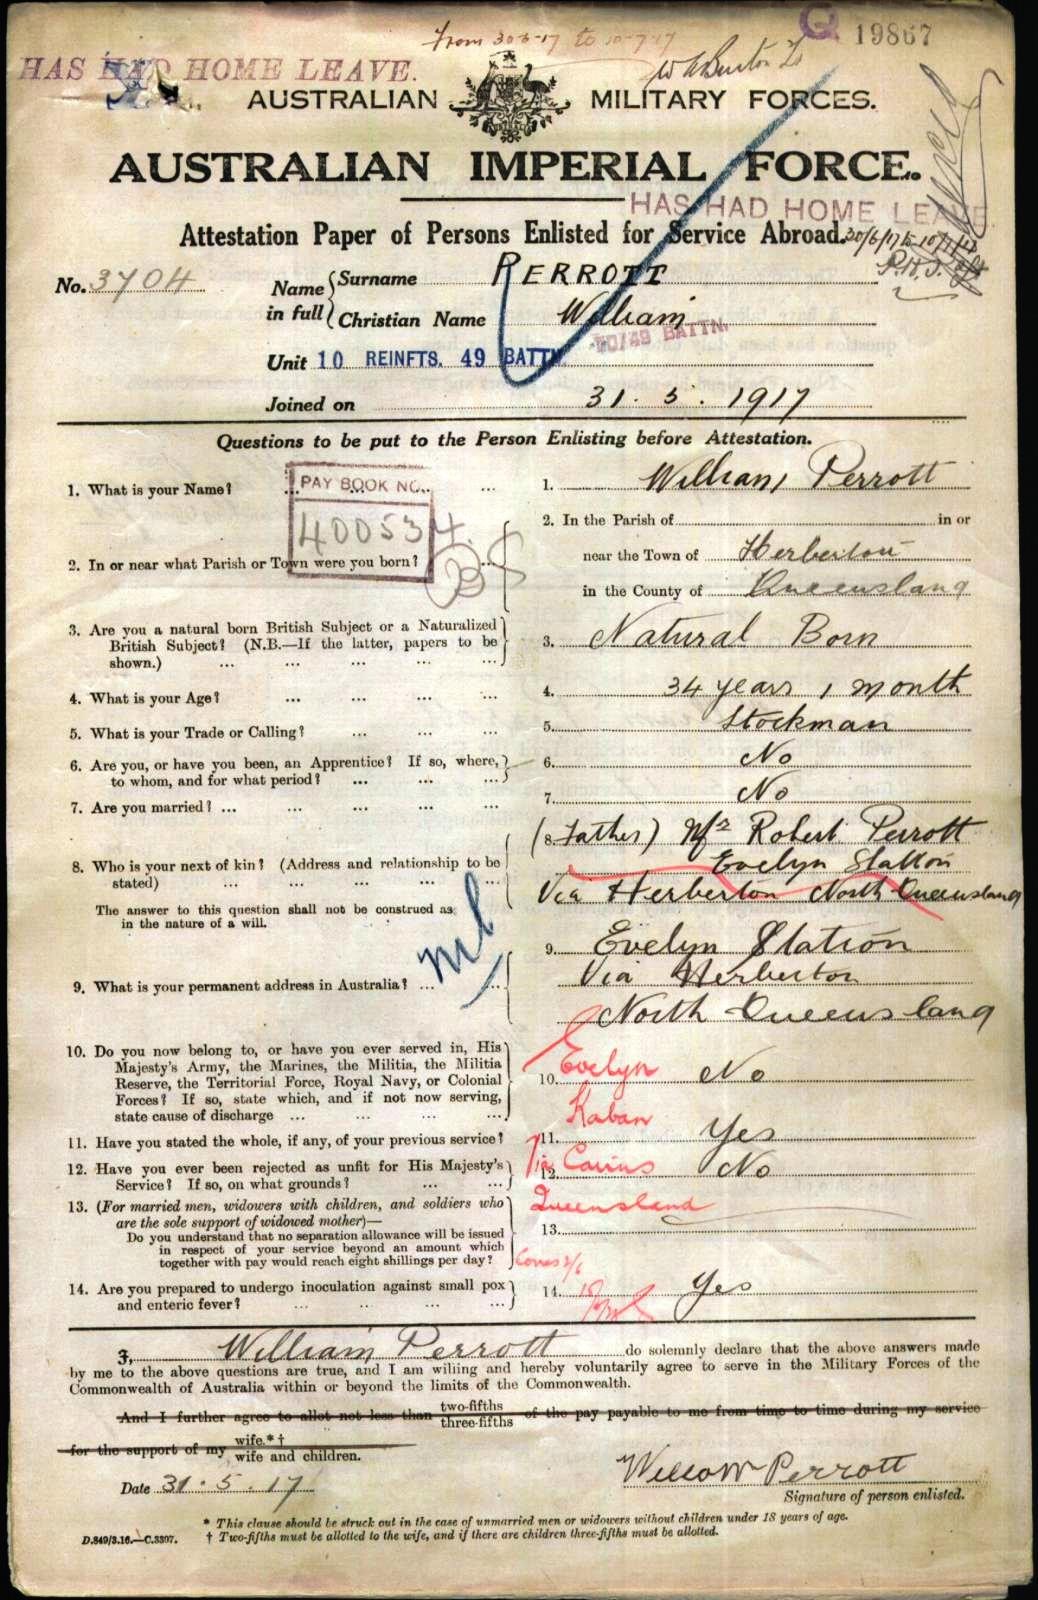 From 30-6-17 to 10-7-17
Q 19867
HAS HAD HOME LEAVE.
AUSTRALIAN MILITARY FORCES.
AUSTRALIAN IMPERIAL FORCE.
HAS HAD HOME LEAVE
Attestation Paper of Persons Enlisted for Service Abroad.
30/6/17 to 10/7/17
No. 3704
Name in full { Surname PERROTT
Christian Name William
Unit 10 REINFTS. 49 BATTN.
10/49 BATTN.
Joined on 31. 5. 1917
Questions to be put to the Person Enlisting before Attestation.
1. What is your Name? ... ... 1. William Perrott
PAY BOOK NO.
400534.
2. In or near what Parish or Town were you born? ... 2. In the Parish of in or
near the Town of Herberton
in the County of Queensland
3. Are you a natural born British Subject or a Naturalized
British Subject? (N.B.—If the latter, papers to be
shown.) ... ... ... ... 3. Natural Born
4. What is your Age? ... ... ... 4. 34 years 1 month
5. What is your Trade or Calling? ... ... 5. Stockman
6. Are you, or have you been, an Apprentice? If so, where,
to whom, and for what period? ... ... ... 6. No
7. Are you married? ... ... ... ... 7. No
8. Who is your next of kin? (Address and relationship to be
stated) ... ... ... ...
The answer to this question shall not be construed as
in the nature of a will.
8. (Father) Mr Robert Perrott
Evelyn Station
Via Herberton North Queensland
9. What is your permanent address in Australia? ... ...
9. Evelyn Station
Via Herberton
North Queensland
10. Do you now belong to, or have you ever served in, His
Majesty's Army, the Marines, the Militia, the Militia
Reserve, the Territorial Force, Royal Navy, or Colonial
Forces? If so, state which, and if not now serving,
state cause of discharge ... ... ... ...
10. No
Evelyn
Kaban
Via Cairns
Queensland
11. Have you stated the whole, if any, of your previous service? 11. Yes
12. Have you ever been rejected as unfit for His Majesty's
Service? If so, on what grounds? ... ... 12. No
13. (For married men, widowers with children, and soldiers who
are the sole support of widowed mother)—
Do you understand that no separation allowance will be issued
in respect of your service beyond an amount which
together with pay would reach eight shillings per day?
13.
14. Are you prepared to undergo inoculation against small pox
and enteric fever? ... ... ... 14. Yes
I, William Perrott do solemnly declare that the above answers made
by me to the above questions are true, and I am willing and hereby voluntarily agree to serve in the Military Forces of the
Commonwealth of Australia within or beyond the limits of the Commonwealth.
And I further agree to allot not less than two-fifths three-fifths of the pay payable to me from time to time during my service
for the support of my wife.*† wife and children.
Date 31. 5. 17
William Perrott
Signature of person enlisted.
* This clause should be struck out in the case of unmarried men or widowers without children under 18 years of age.
† Two-fifths must be allotted to the wife, and if there are children three-fifths must be allotted.
D.849/3.16.—C.3307.